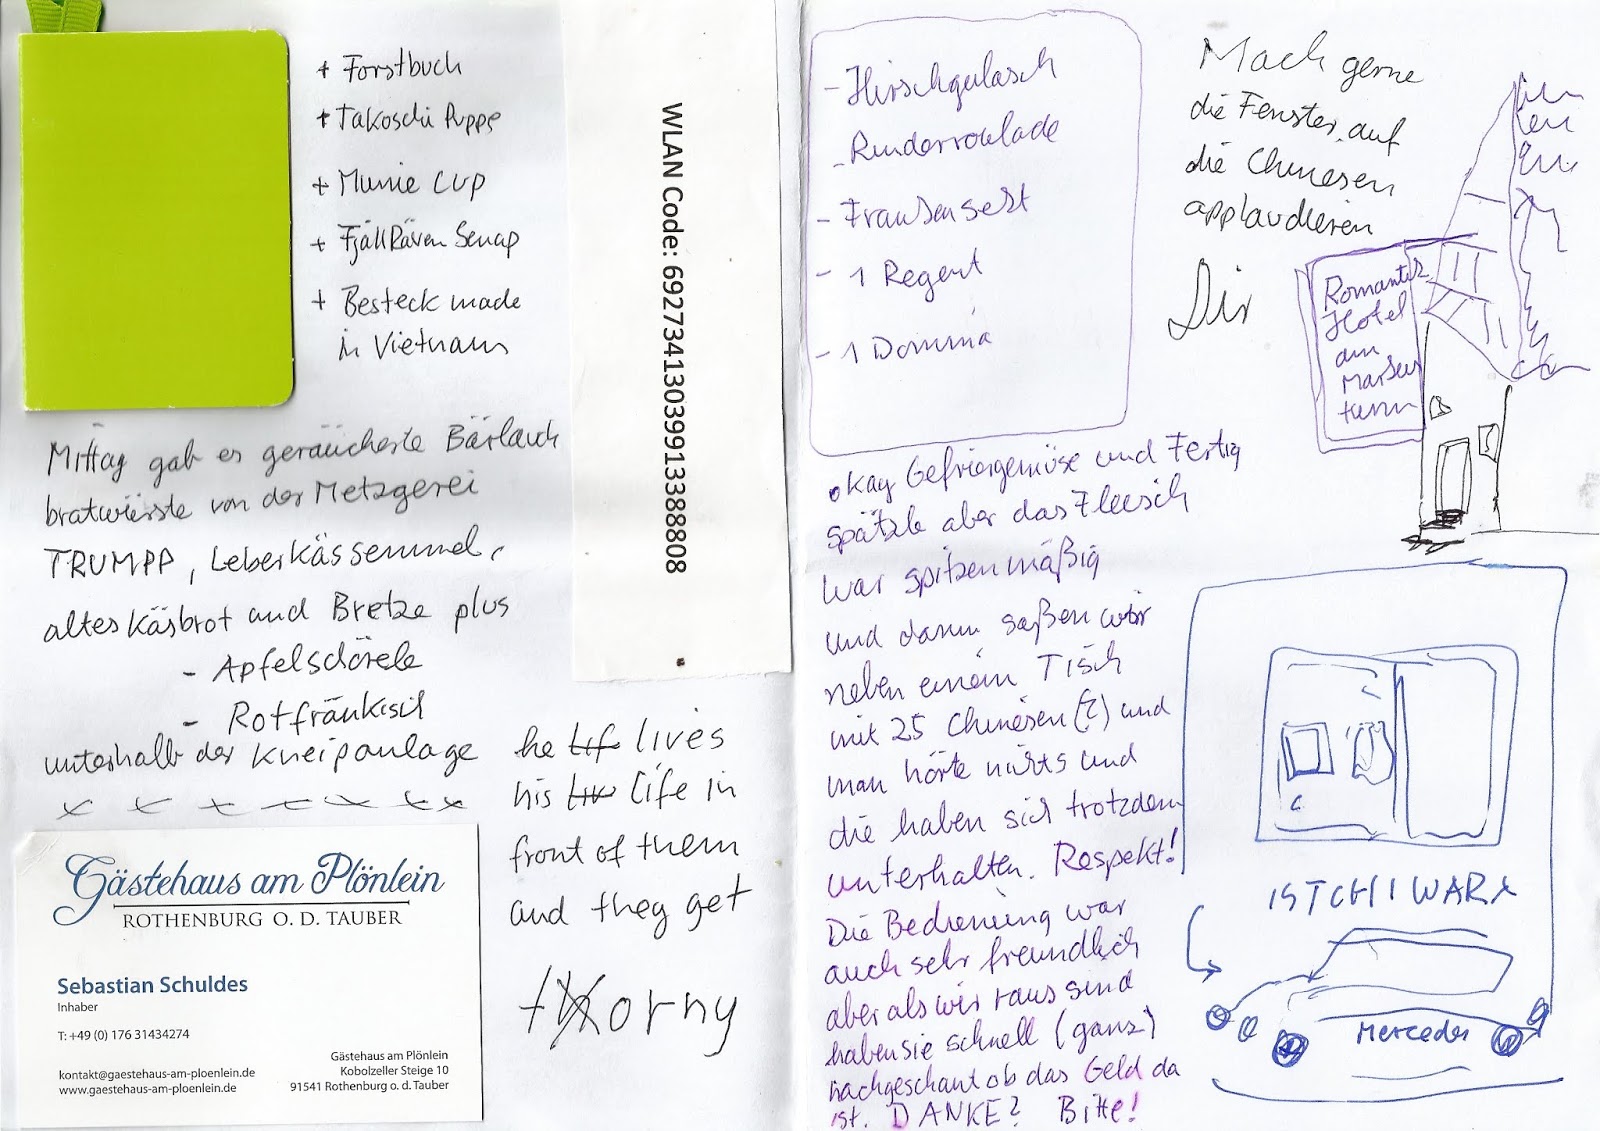 + Forstbuch
+ Takoschi Puppe
+ Mumie Cup
+ FjällRäven Senap
+ Besteck made
in Vietnam
WLAN Code: 69273413039913388808
Mittag gab es geräucherte Bärlauch
bratwürste von der Metzgerei
TRUMPP, Leberkässemmel,
altes Käsbrot und Bretze plus
- Apfelschörele
- Rotfränkisch
unterhalb der Kneipanlage
he lives
his life in
front of them
and they get
horny
Gästehaus am Plönlein
ROTHENBURG O. D. TAUBER
Sebastian Schuldes
Inhaber
T: +49 (0) 176 31434274
kontakt@gaestehaus-am-ploenlein.de
www.gaestehaus-am-ploenlein.de
Gästehaus am Plönlein
Kobolzeller Steige 10
91541 Rothenburg o. d. Tauber
- Hirschgulasch
- Rinderroulade
- Frausensekt
- 1 Regent
- 1 Domina
Mach gerne
die Fenster auf
die Chinesen
applaudieren
Dir
Romantik
Hotel
am
Markus
turm
• Kay Gefriergemüse und Fertig
spätzle aber das Fleisch
war spitzenmäßig
und dann saßen wir
neben einem Tisch
mit 25 Chinesen (?) und
man hörte nichts und
die haben sich trotzdem
unterhalten. Respekt!
Die Bedienung war
auch sehr freundlich
aber als wir raus sind
haben sie schnell (ganz)
nachgeschaut ob das Geld da
ist. DANKE? Bitte!
ISTCHIWARA
Mercedes